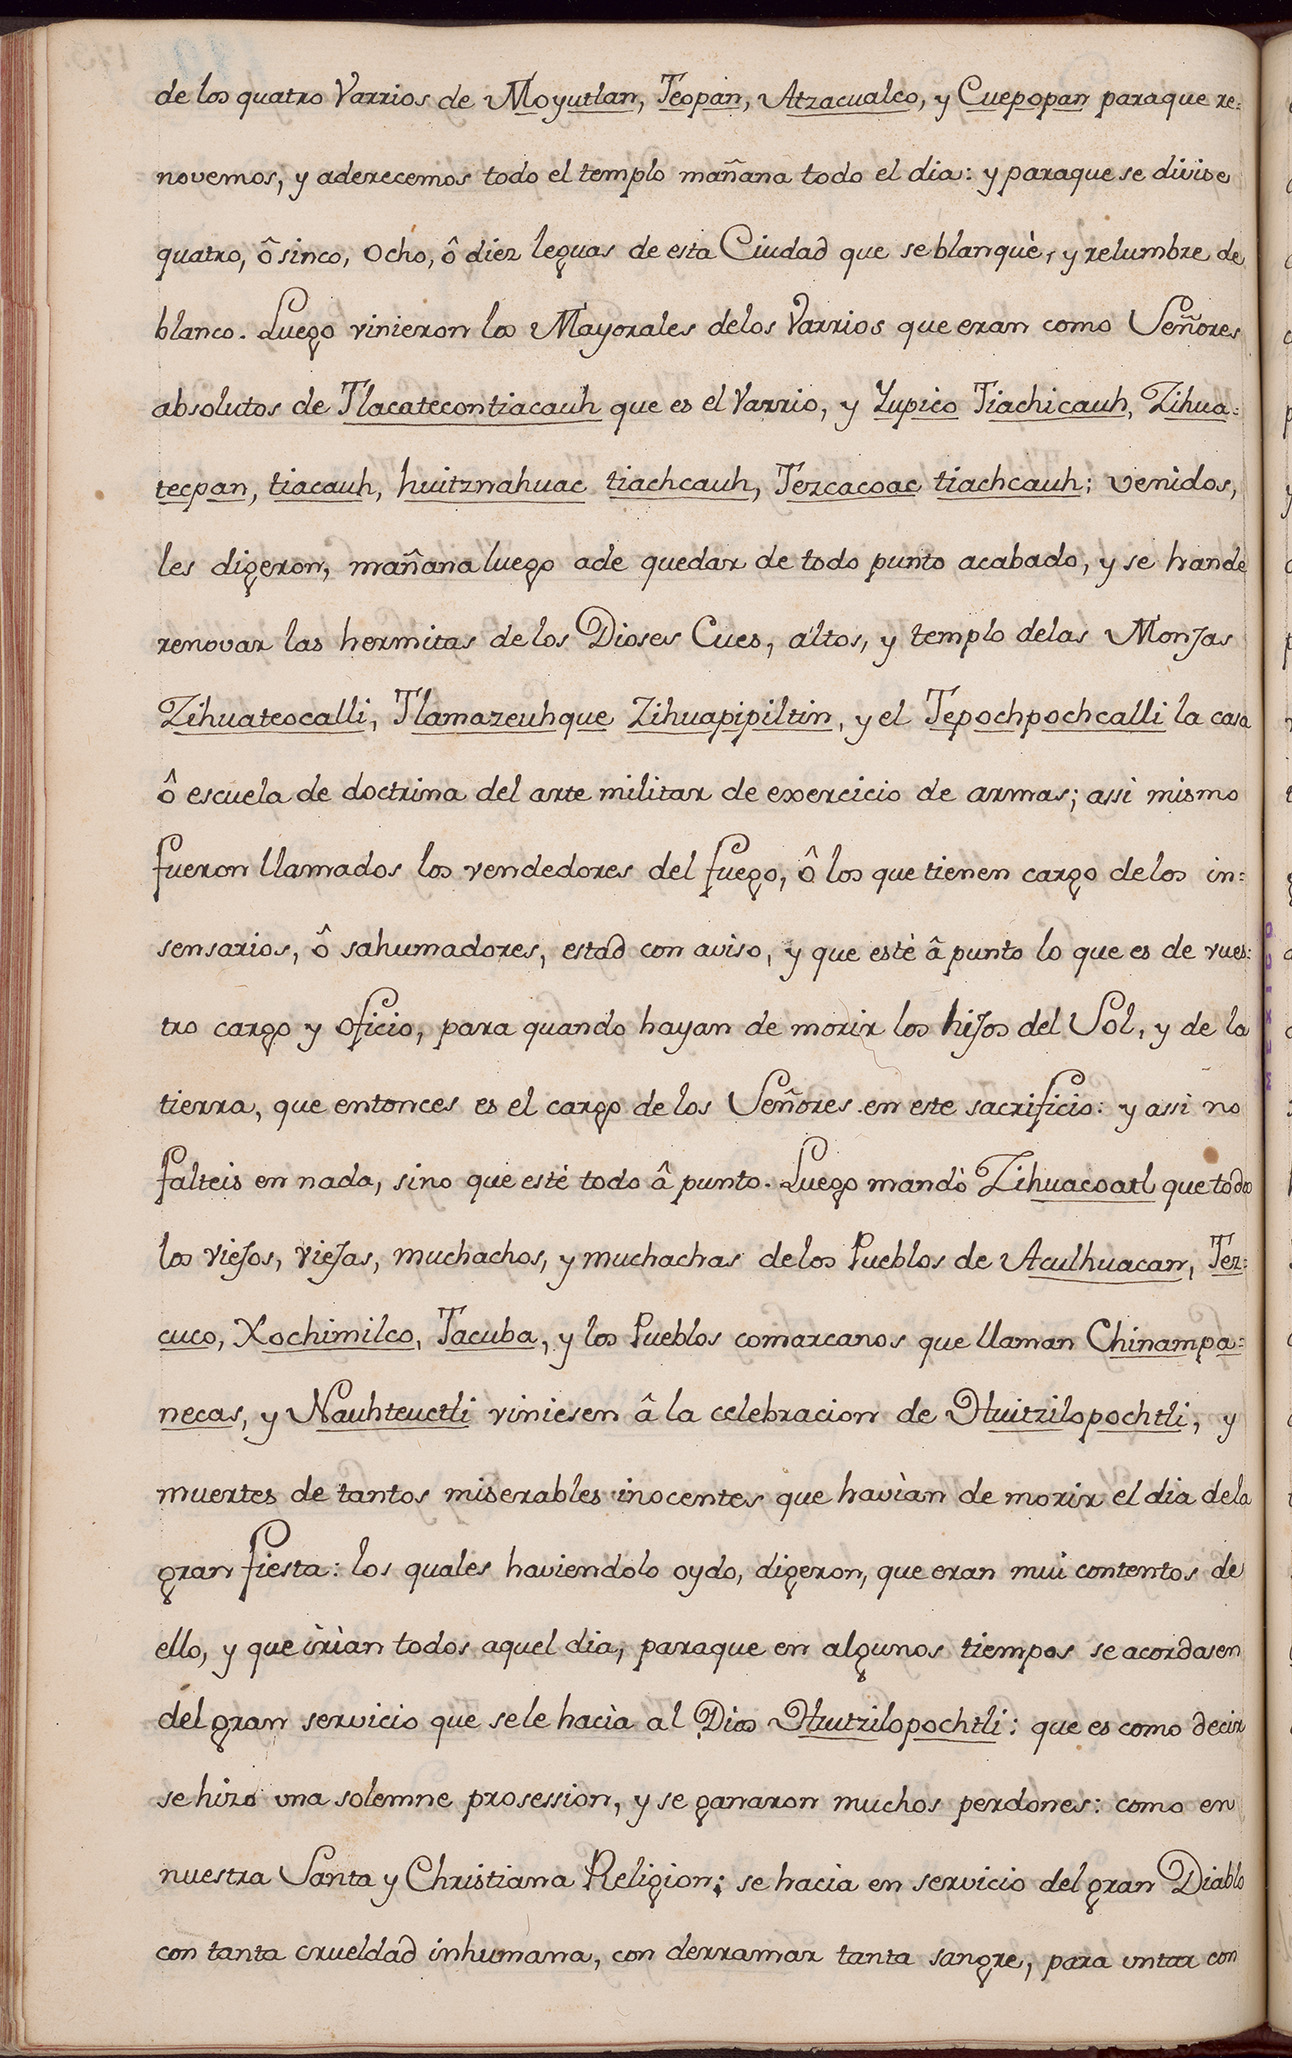 de los quatro Varrios de Moyutlan, Teopan, Atzacualco, y Cuepopan paraque re=
novemos, y aderecemos todo el templo mañana todo el dia: y paraque se divise
quatro, ô sinco, ocho, ô diez leguas de esta Ciudad que se blanquè, y relumbre de
blanco. Luego vinieron los Mayorales delos Varrios que eran como Señores
absolutos de Tlacatecontiacauh que es el Varrio, y Yupico Tiachicauh, Zihua=
tecpan, tiacauh, huitznahuac tiachcauh, Tezcacoac tiachcauh; venidos,
les digeron, mañana luego ade quedar de todo punto acabado, y se hande
renovar las hermitas de los Dioses Cues, altos, y templo delas Monjas
Zihuateocalli, Tlamazeuhque Zihuapipiltin, y el Tepochpochcalli la casa
ô escuela de doctrina del arte militar de exercicio de armas; assi mismo
fueron llamados los vendedores del fuego, ô los que tienen cargo delos in=
sensarios, ô sahumadores, estad con aviso, y que estè â punto lo que es de vues=
tro cargo y oficio, para quando hayan de morir los hijos del Sol, y de la
tierra, que entonces es el cargo de los Señores en este sacrificio: y assi no
falteis en nada, sino que esté todo â punto. Luego mandò Zihuacoatl que todos
los viejos, viejas, muchachos, y muchachas delos Pueblos de Aculhuacan, Tez=
cuco, Xochimilco, Tacuba, y los Pueblos comarcanos que llaman Chinampa=
necas, y Nauhteuctli viniesen â la celebracion de Huitzilopochtli, y
muertes de tantos miserables inocentes que havian de morir el dia dela
gran fiesta: los quales haviendolo oydo, digeron, que eran mui contentos de
ello, y que irian todos aquel dia, paraque en algunos tiempos se acordasen
del gran servicio que sele hacìa al Dios Huitzilopochtli: que es como decir
se hizo una solemne prosession, y se ganaron muchos perdones: como en
nuestra Santa y Christiana Religion; se hacia en servicio del gran Diablo
con tanta crueldad inhumana, con derramar tanta sangre, para untar con